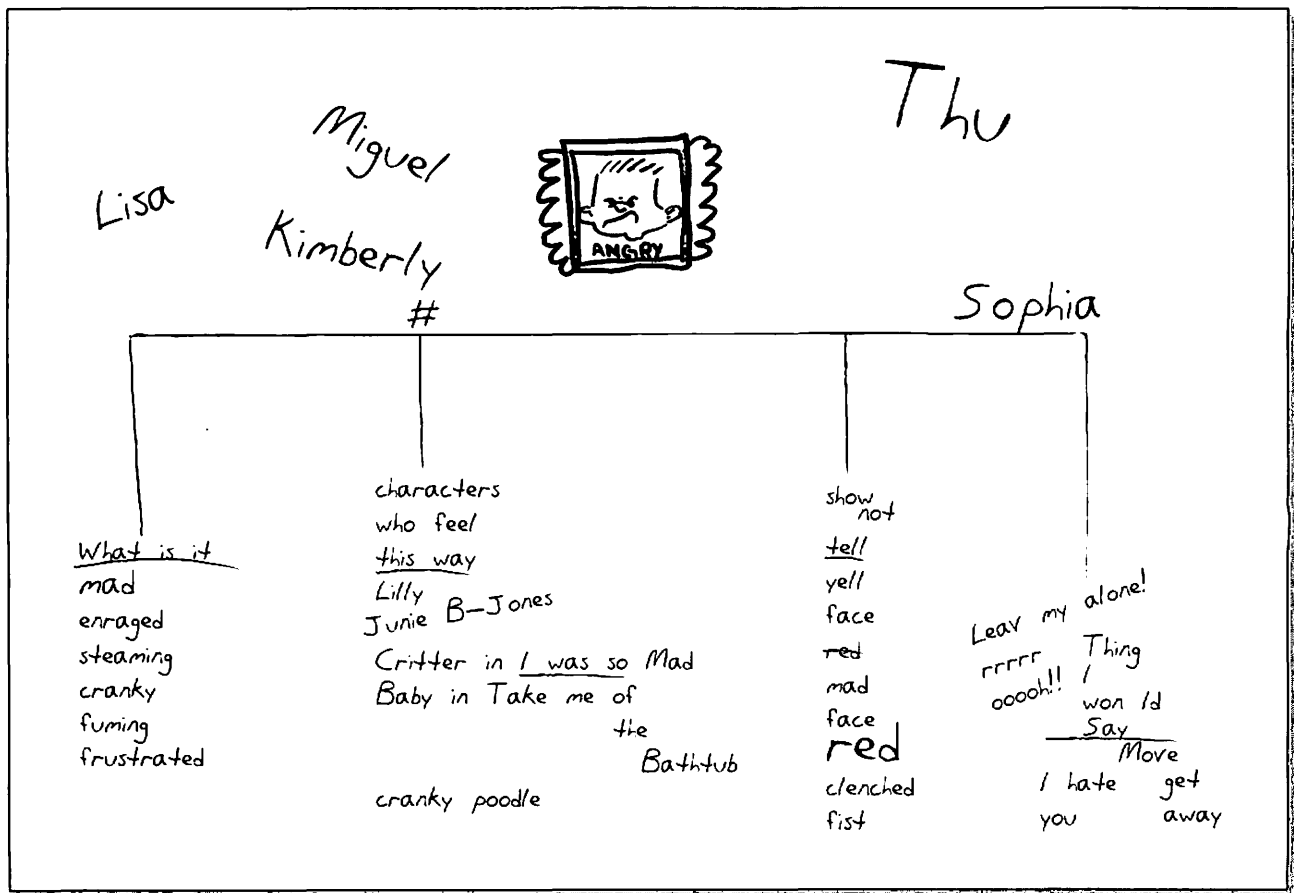 Thu
Miguel
Lisa
Kimberly
ANGRY
#
Sophia
What is it
mad
enraged
steaming
cranky
fuming
frustrated
characters
who feel
this way
Lilly
Junie B-Jones
Critter in I was so Mad
Baby in Take me of
the
Bathtub
cranky poodle
show
not
tell
yell
face
red
mad
face
red
clenched
fist
Leav my alone!
rrrrr
ooooh!!
Thing
I
won ld
Say
Move
I hate
you
get
away